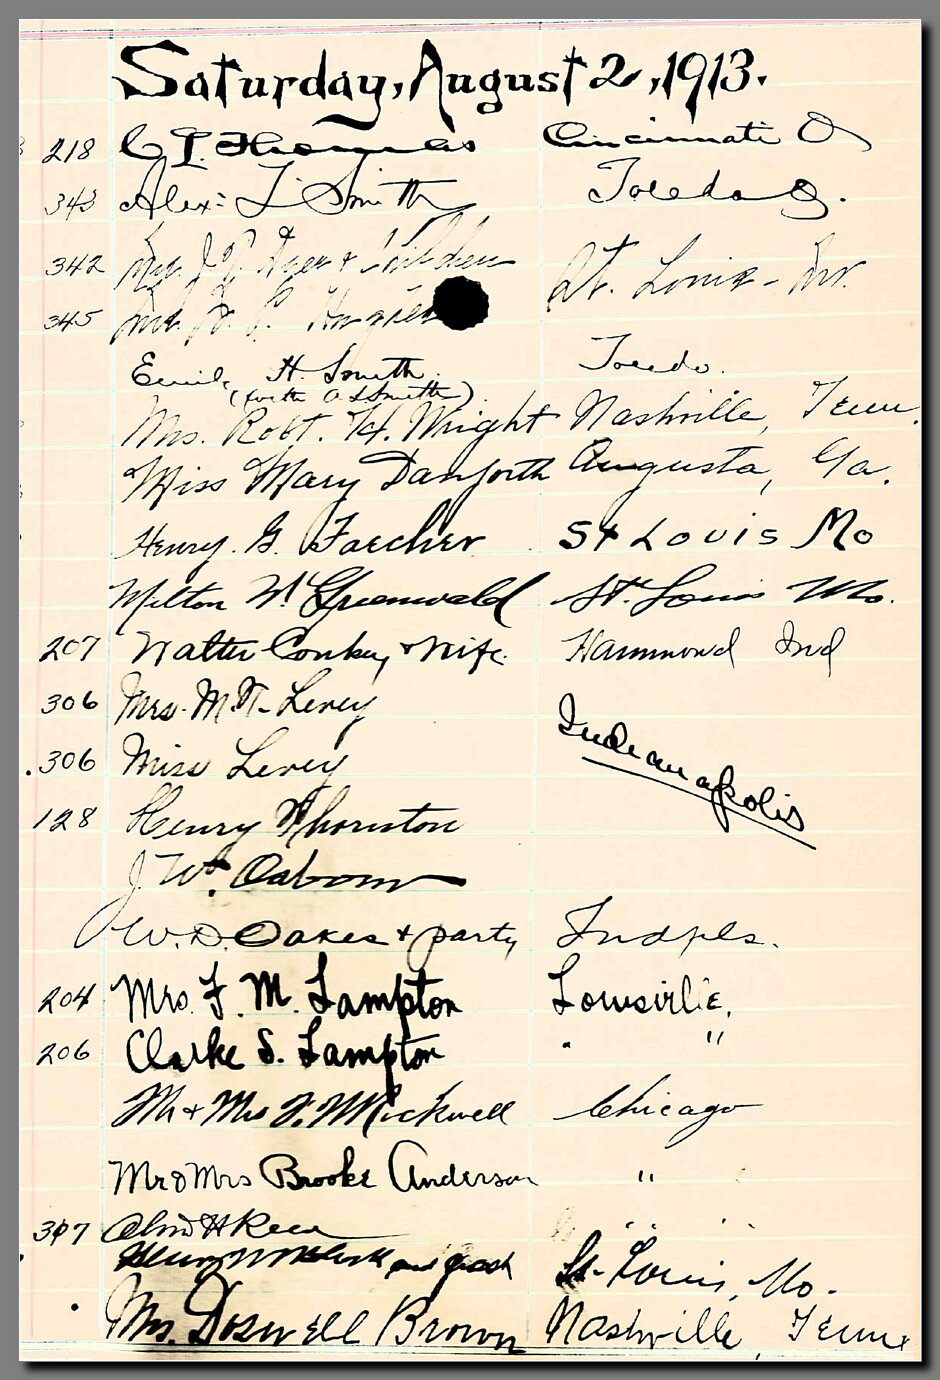 Saturday, August 2, 1913.
218 C I. Thomas Cincinnati O
343 Alex: L Smith Toledo O.
342 Mrs. J. & Children
345 St. Louis - Mo.
H. Smith. Toledo.
(with A L Smith)
Mrs. Robt. H. Wright Nashville, Tenn.
Miss Mary Danforth Augusta, Ga.
Henry. G. Faecher St Louis Mo
Milton W. Greenwald St. Louis Mo.
207 Walter Conkey & Wife. Hammond Ind
306 Mrs. M. Levey
306 Miss Levey Indianapolis
128 Henry Thornton
J. Wm. Osborn
W. D. Oakes & party Indpls.
204 Mrs. F. M. Lampton Louisville,
206 Clarke S. Lampton " "
Mr & Mrs F. M Mickwell Chicago
Mr & Mrs Brooke Anderson "
307
Henry and St. Louis, Mo.
Mrs. Doswell Brown Nashville, Tenn